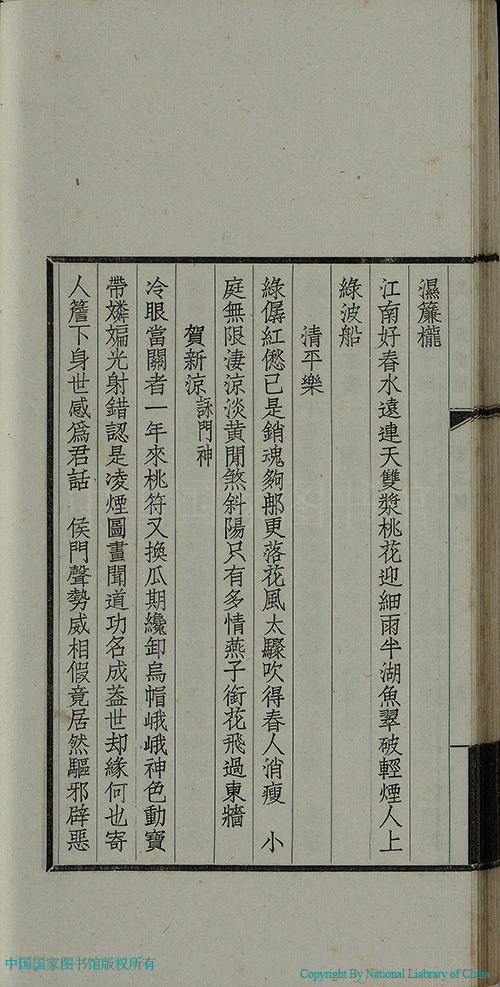 濕簾櫳
江南好春水遠連天雙槳桃花迎細雨半湖魚翠破輕煙人上
綠波船
清平樂
綠僝紅僽已是銷魂夠那更落花風太驟吹得春人消瘦　小
庭無限淒涼淡黃閒煞斜陽只有多情燕子銜花飛過東牆
賀新涼詠門神
冷眼當關者一年來桃符又換瓜期纔卸烏帽峨峨神色動寶
帶斒斕光射錯認是凌煙圖畫聞道功名成蓋世却緣何也寄
人簷下身世感爲君話　侯門聲勢威相假竟居然驅邪辟惡
中国国家图书馆版权所有
Copyright By National Liabrary of China